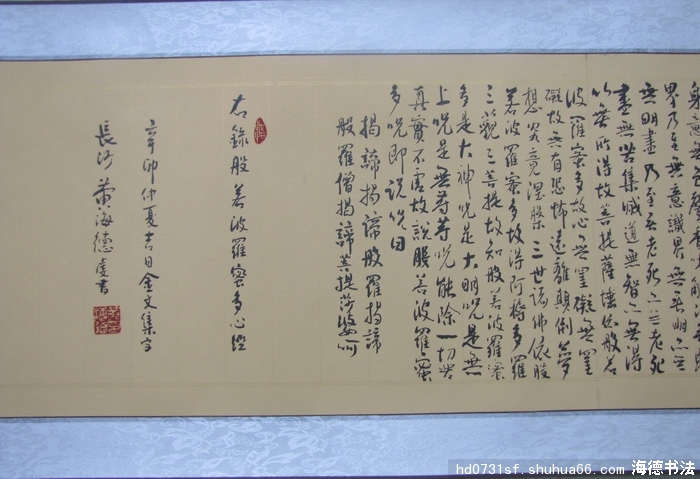 界乃至無意識界無無明亦無
無明盡乃至無老死亦無老死
盡無苦集滅道無智亦無得
以無所得故菩提薩埵依般若
波羅蜜多故心無罣礙無罣
礙故無有恐怖遠離顛倒夢
想究竟涅槃三世諸佛依般
若波羅蜜多故得阿耨多羅
三藐三菩提故知般若波羅蜜
多是大神咒是大明咒是無
上咒是無等等咒能除一切苦
真實不虛故說般若波羅蜜
多咒即說咒曰
揭諦揭諦般羅揭諦
般羅僧揭諦菩提莎婆訶
右錄般若波羅蜜多心經
辛卯仲夏吉日金文集字
長沙海德虔書
hd0731sf.shuhua66.com 海德书法